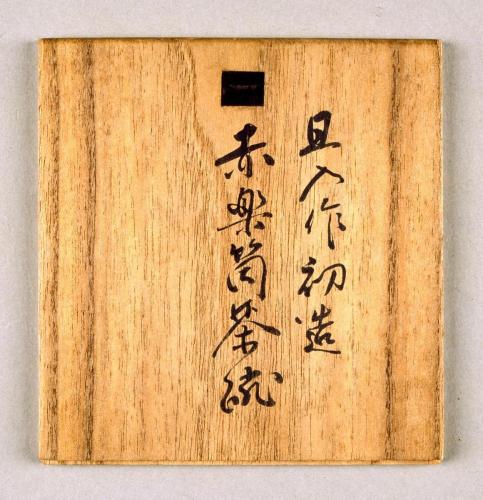 且入作初造
赤楽筒茶碗